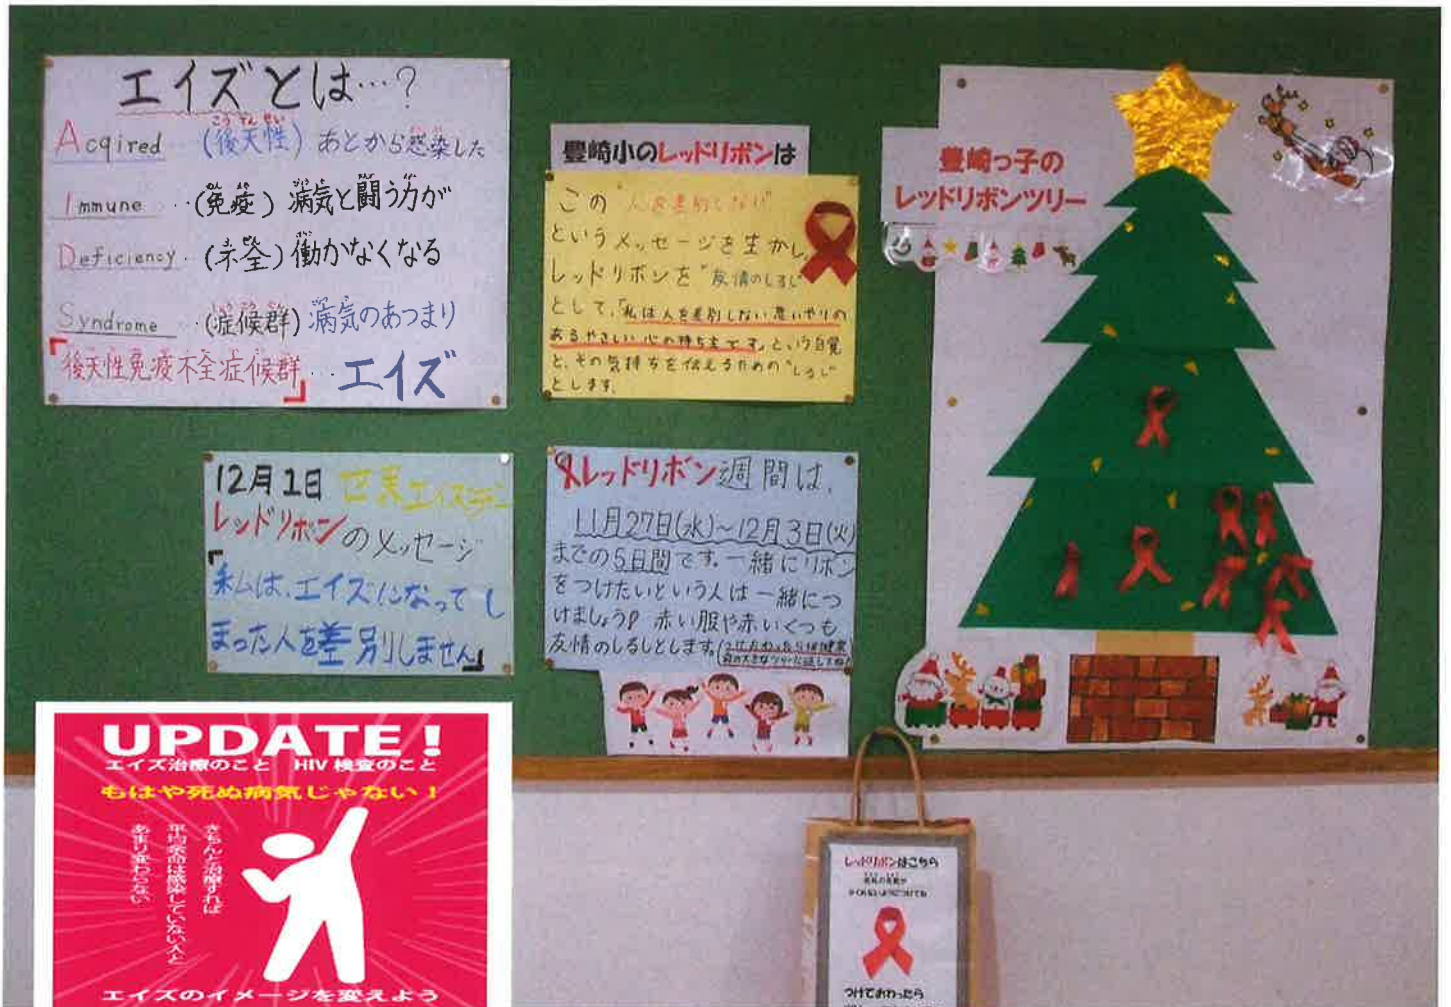 エイズとは…?
Acqired …(後天性) あとから感染した
こうてんせい
Immune …(免疫) 病気と闘う力が
Deficiency …(不全) 働かなくなる
Syndrome …(症候群) 病気のあつまり
『後天性免疫不全症候群』…エイズ
豊崎小のレッドリボンは
この"人を差別しない"
というメッセージを生かし、
レッドリボンを"友情のしるし"
として、「私は人を差別しない思いやりの
あるやさしい心の持ち主です」という自覚
と、その気持ちを伝えるための"しるし"
とします。
豊崎っ子の
レッドリボンツリー
12月1日 世界エイズデー
レッドリボンのメッセージ
『私は、エイズになってし
まった人を差別しません』
レッドリボン週間は、
11月27日(水)〜12月3日(火)
までの5日間です。一緒にリボン
をつけたいという人は一緒につ
けましょう♪ 赤い服や赤いくつも
友情のしるしとします。
UPDATE!
エイズ治療のこと HIV検査のこと
もはや死ぬ病気じゃない!
きちんと治療すれば
平均余命は感染していない人と
あまり変わらない
エイズのイメージを変えよう
レッドリボンはこちら
つけておわったら